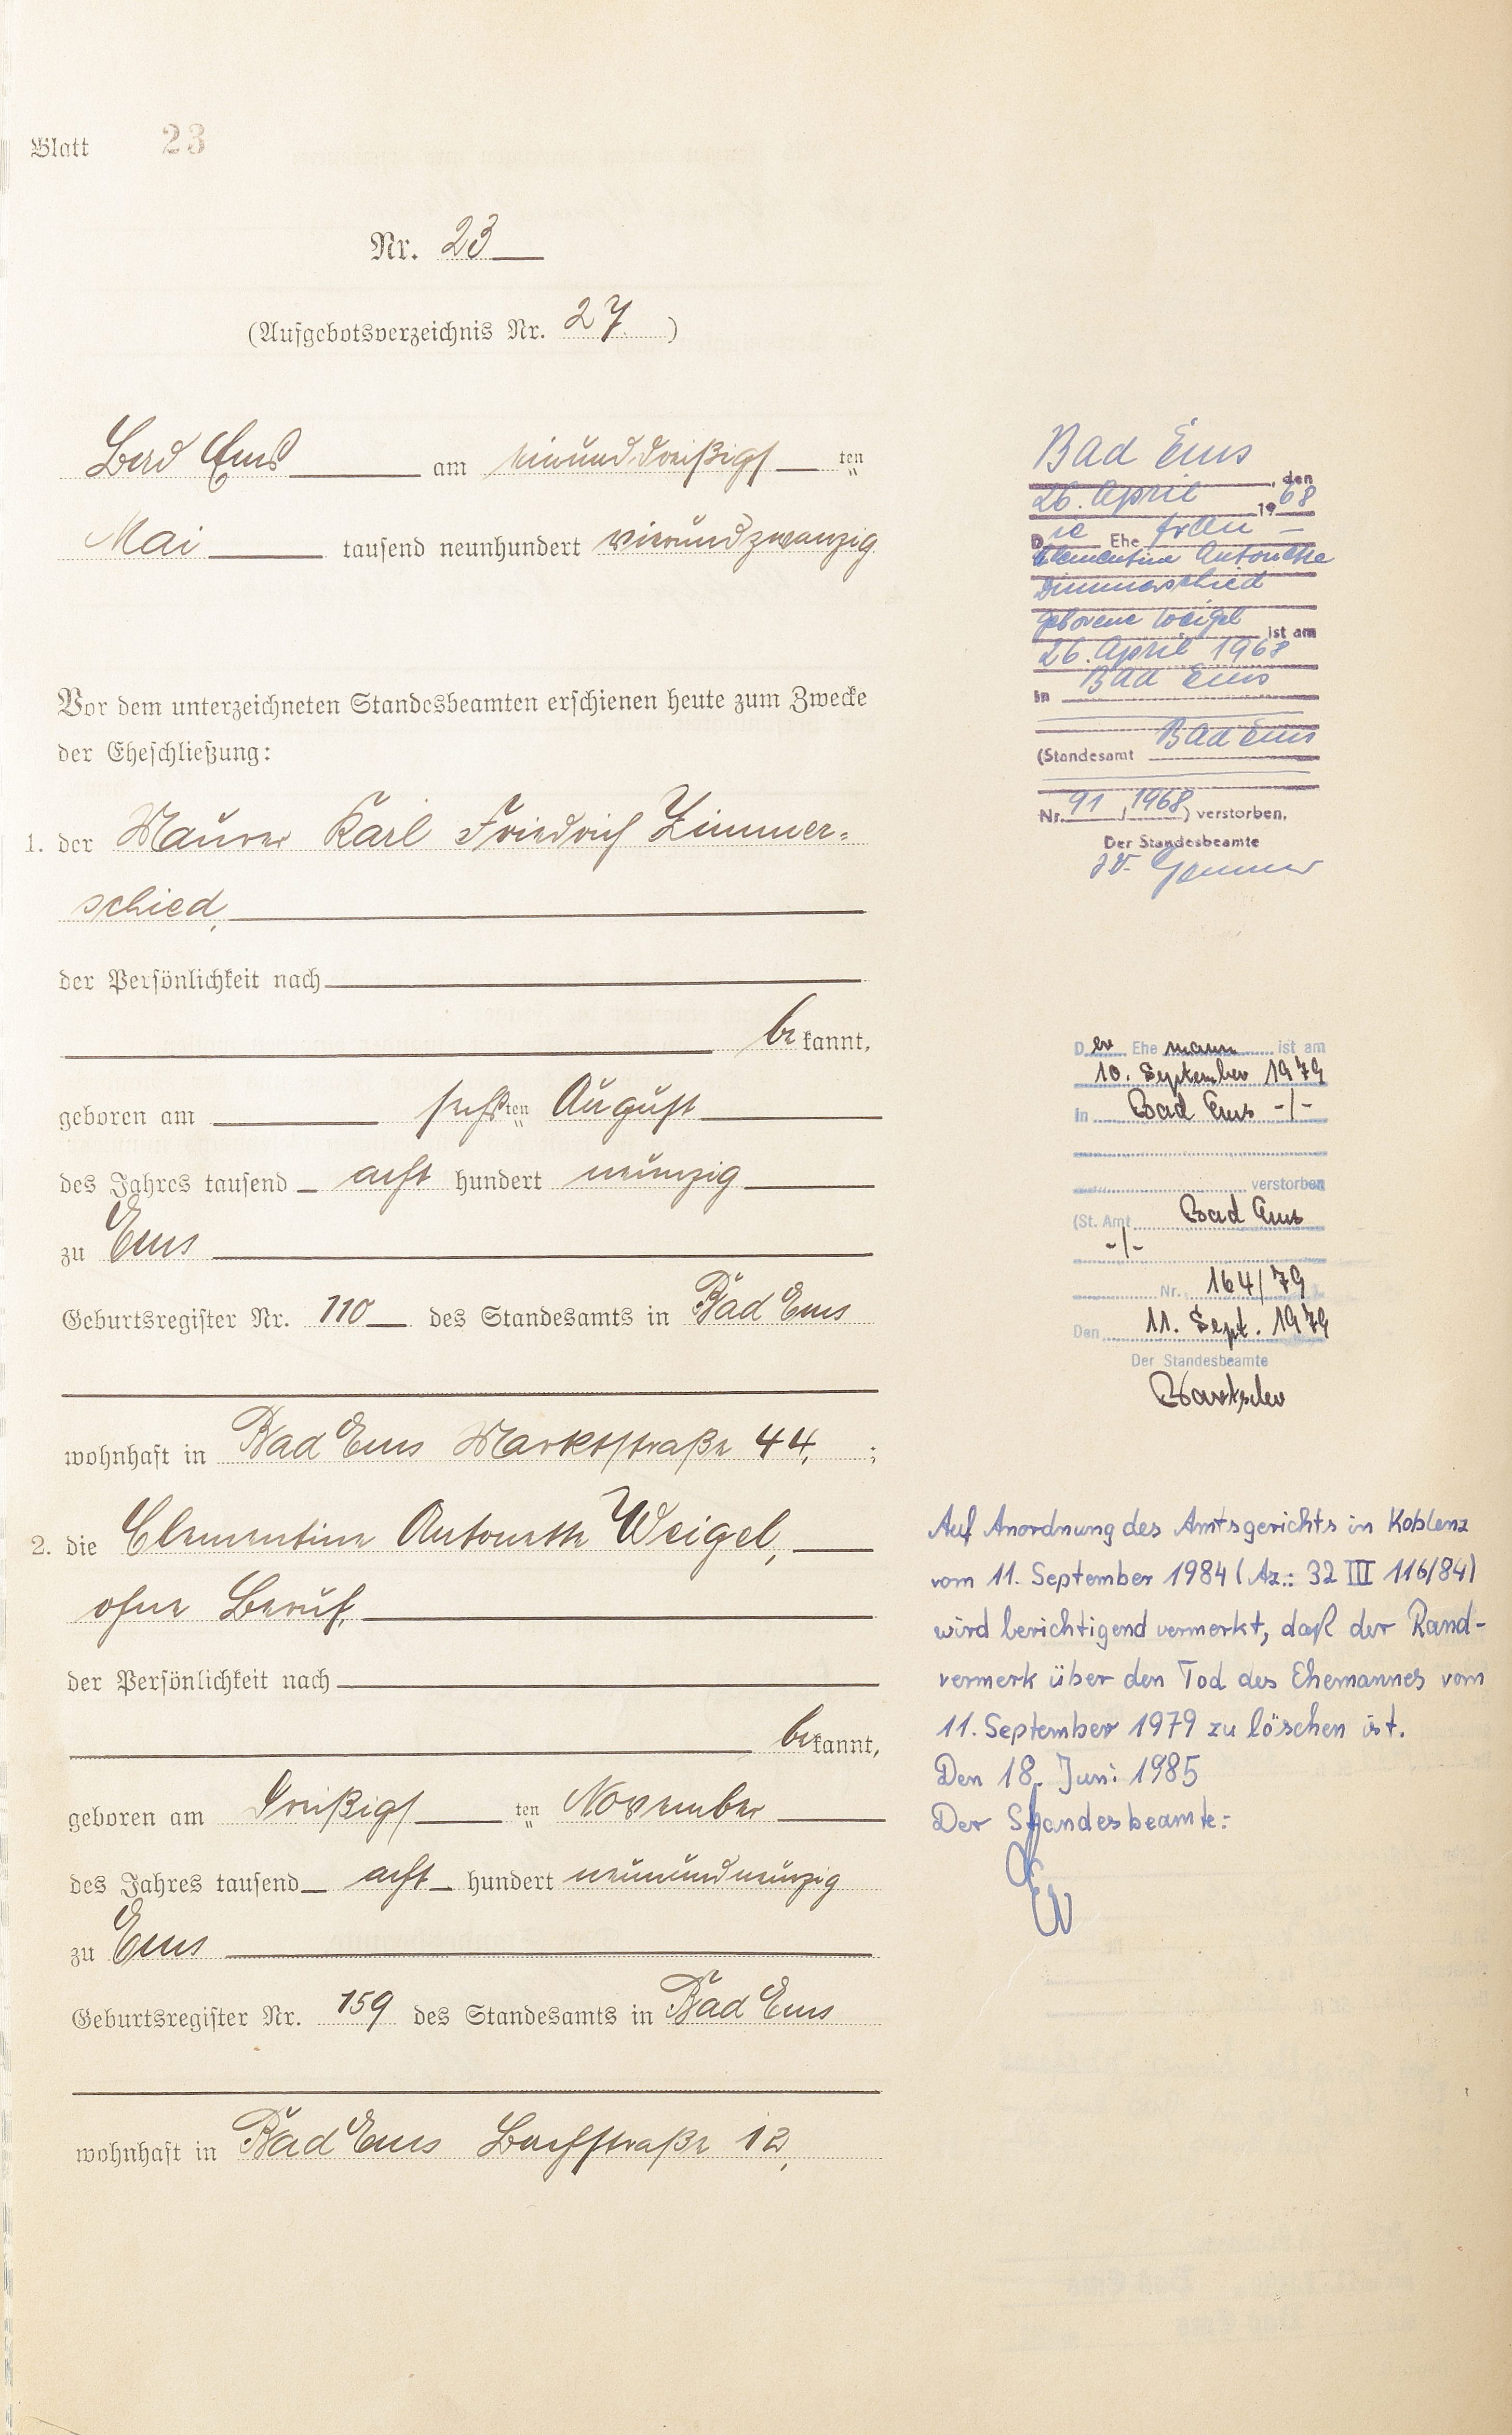 Blatt 23
Nr. 23
(Aufgebotsverzeichnis Nr. 27)
Bad Ems am einunddreißigsten
Mai tausend neunhundert vierundzwanzig
Vor dem unterzeichneten Standesbeamten erschienen heute zum Zwecke
der Eheschließung:
1. der Maurer Karl Friedrich Zimmer-
schied,
der Persönlichkeit nach
bekannt,
geboren am sechsten August
des Jahres tausend acht hundert neunzig
zu Ems
Geburtsregister Nr. 110 des Standesamts in Bad Ems
wohnhaft in Bad Ems Marktstraße 44, ;
2. die Clementine Antonette Weigel,
ohne Beruf,
der Persönlichkeit nach
bekannt,
geboren am dreißigsten November
des Jahres tausend acht hundert neunundneunzig
zu Ems
Geburtsregister Nr. 159 des Standesamts in Bad Ems
wohnhaft in Bad Ems Bachstraße 12,
Bad Ems, den
26. April 1968
Die Ehefrau -
Clementine Antonette
Zimmerschied
geborene Weigel ist am
26. April 1968
in Bad Ems
(Standesamt Bad Ems
Nr. 91/1968) verstorben.
Der Standesbeamte
Der Ehemann ist am
10. September 1979
in Bad Ems -/-
verstorben
(St. Amt Bad Ems
-/-
Nr. 164/79
Den 11. Sept. 1979
Der Standesbeamte
Auf Anordnung des Amtsgerichts in Koblenz
vom 11. September 1984 (Az.: 32 III 116/84)
wird berichtigend vermerkt, daß der Rand-
vermerk über den Tod des Ehemannes vom
11. September 1979 zu löschen ist.
Den 18. Juni 1985
Der Standesbeamte: